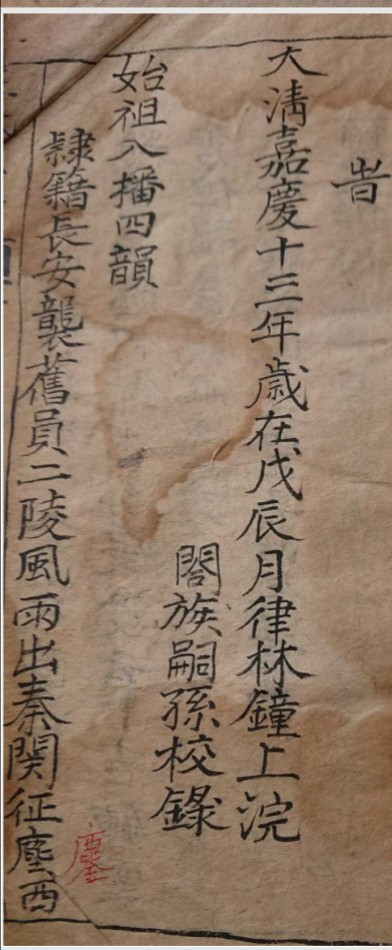 旹
大清嘉慶十三年歲在戊辰月律林鐘上浣
閤族嗣孫校錄
始祖入播四韻
隸籍長安襲舊員二陵風雨出秦関征塵西
鏖